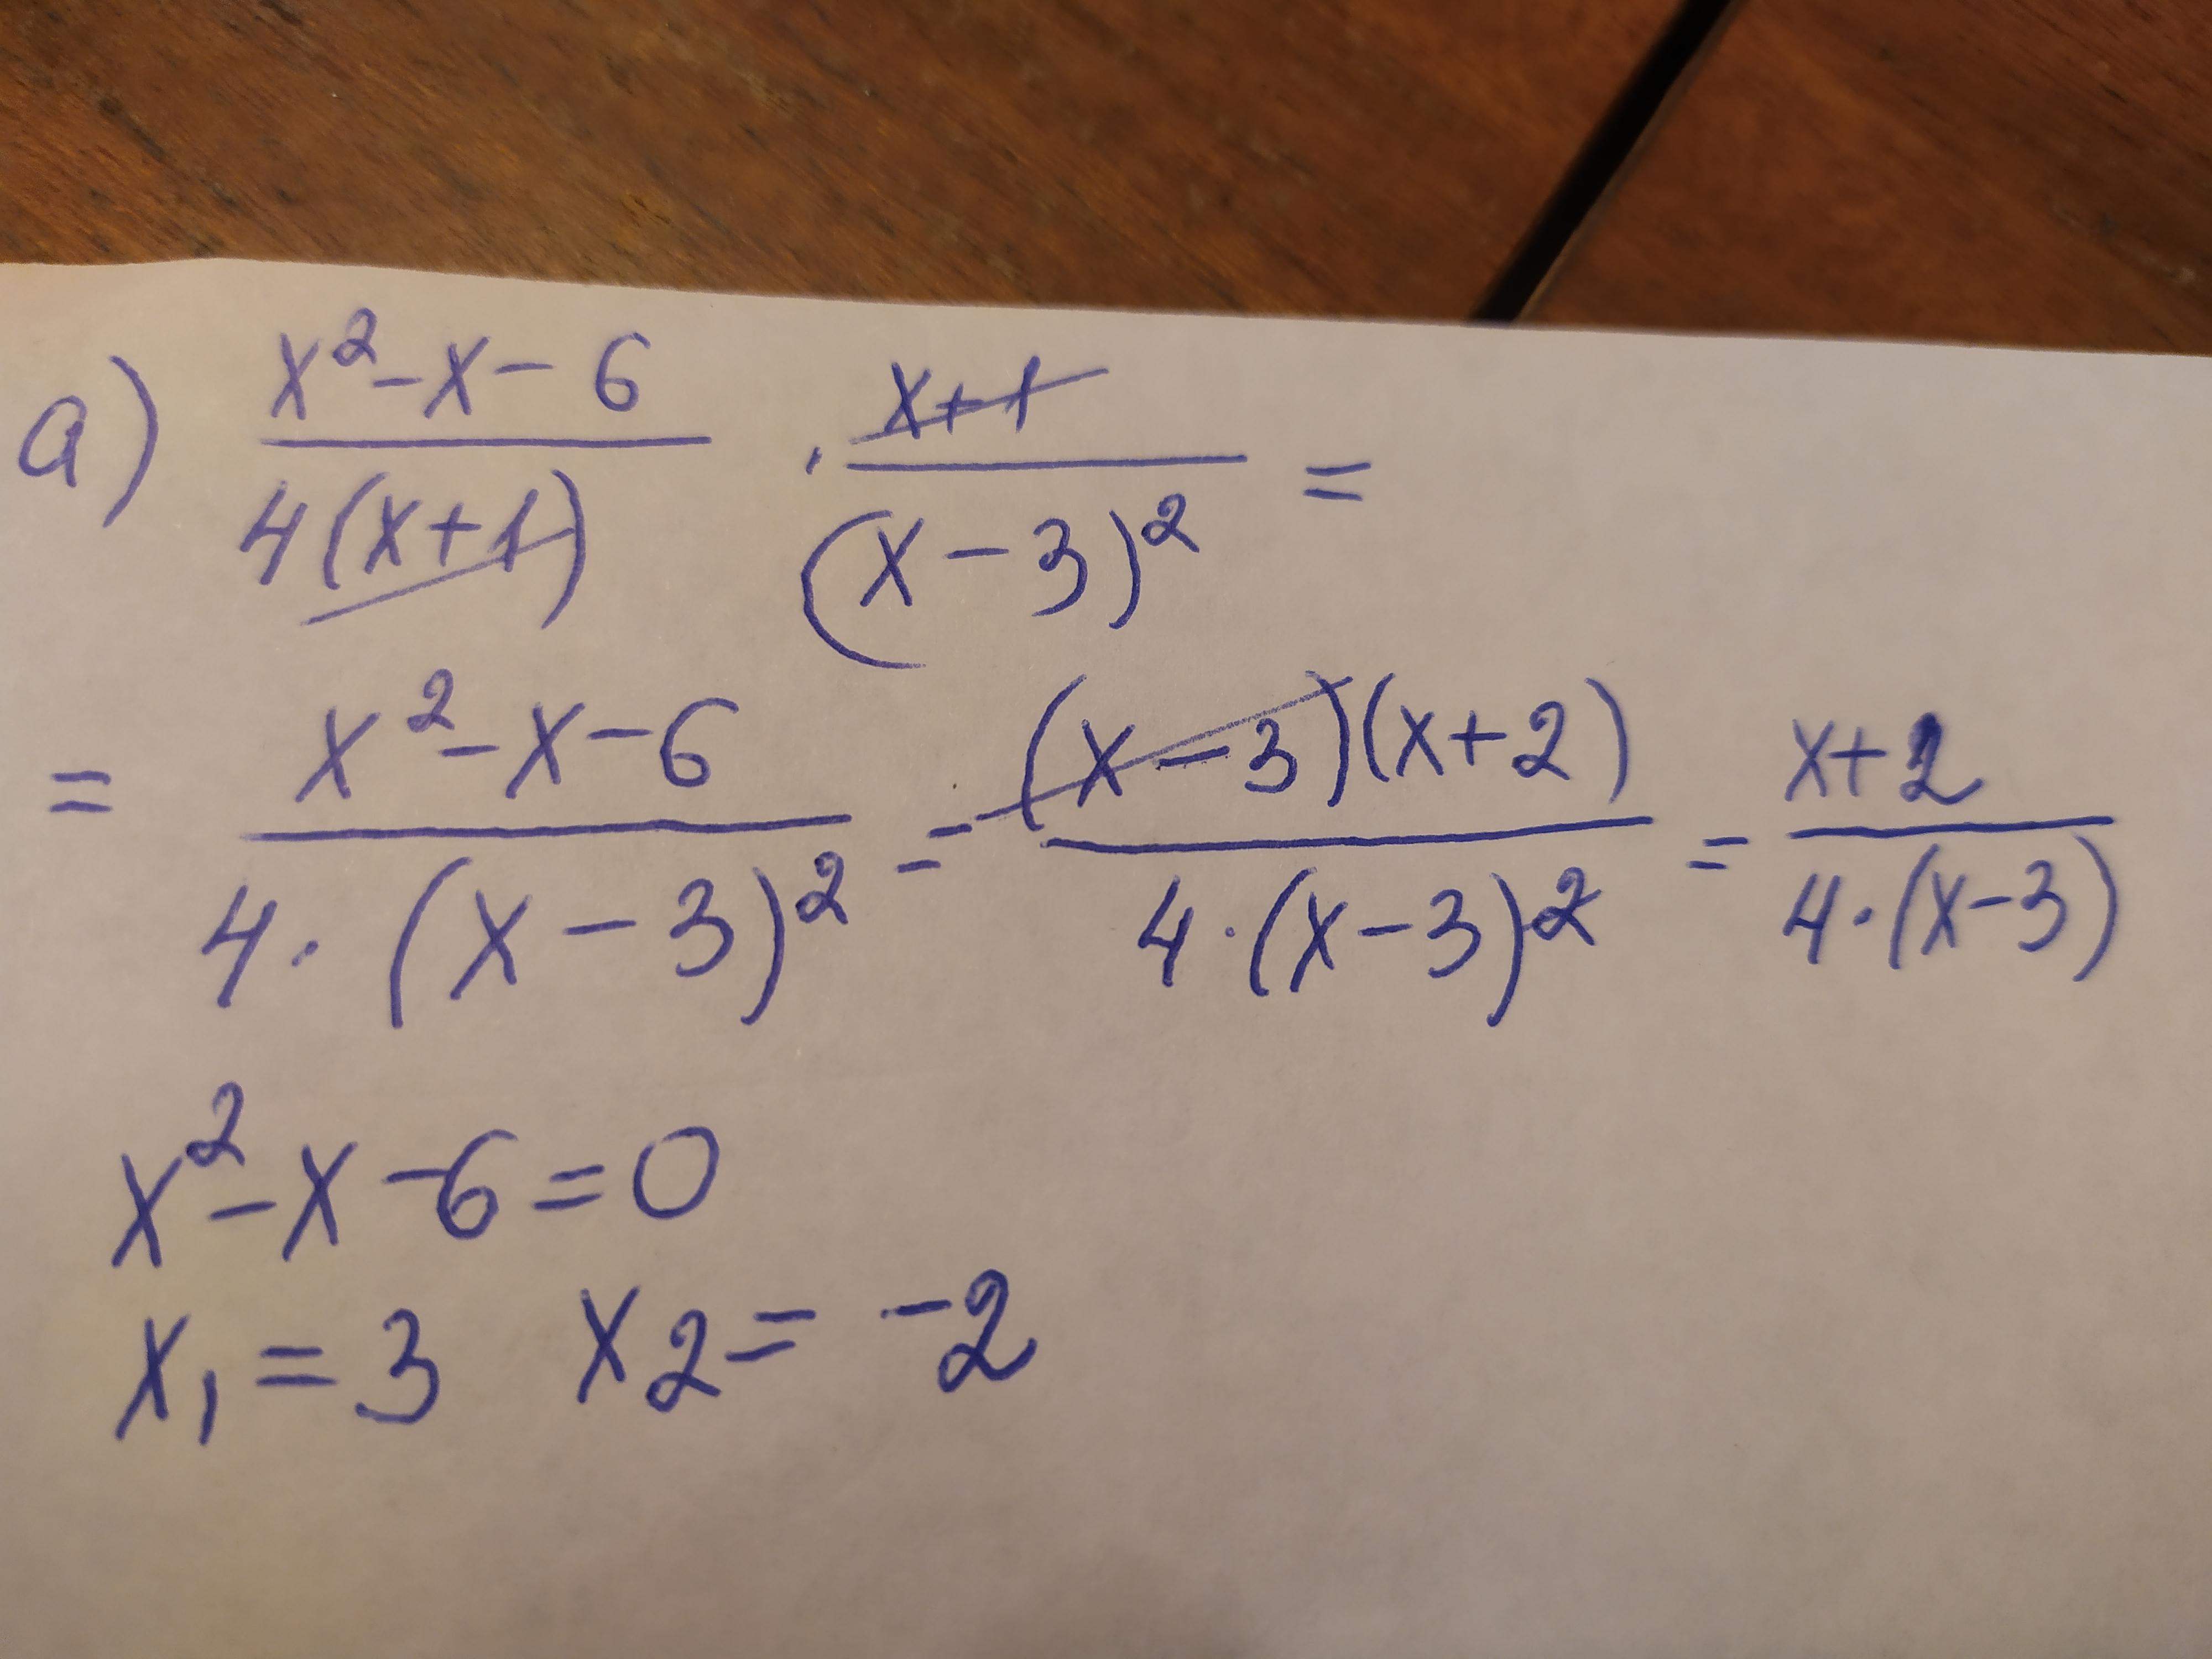 a) (x²-x-6)/(4(x+1)) · (x+1)/((x-3)²) =
= (x²-x-6)/(4·(x-3)²) = ((x-3)(x+2))/(4·(x-3)²) = (x+2)/(4·(x-3))
x²-x-6=0
x₁=3 x₂=-2